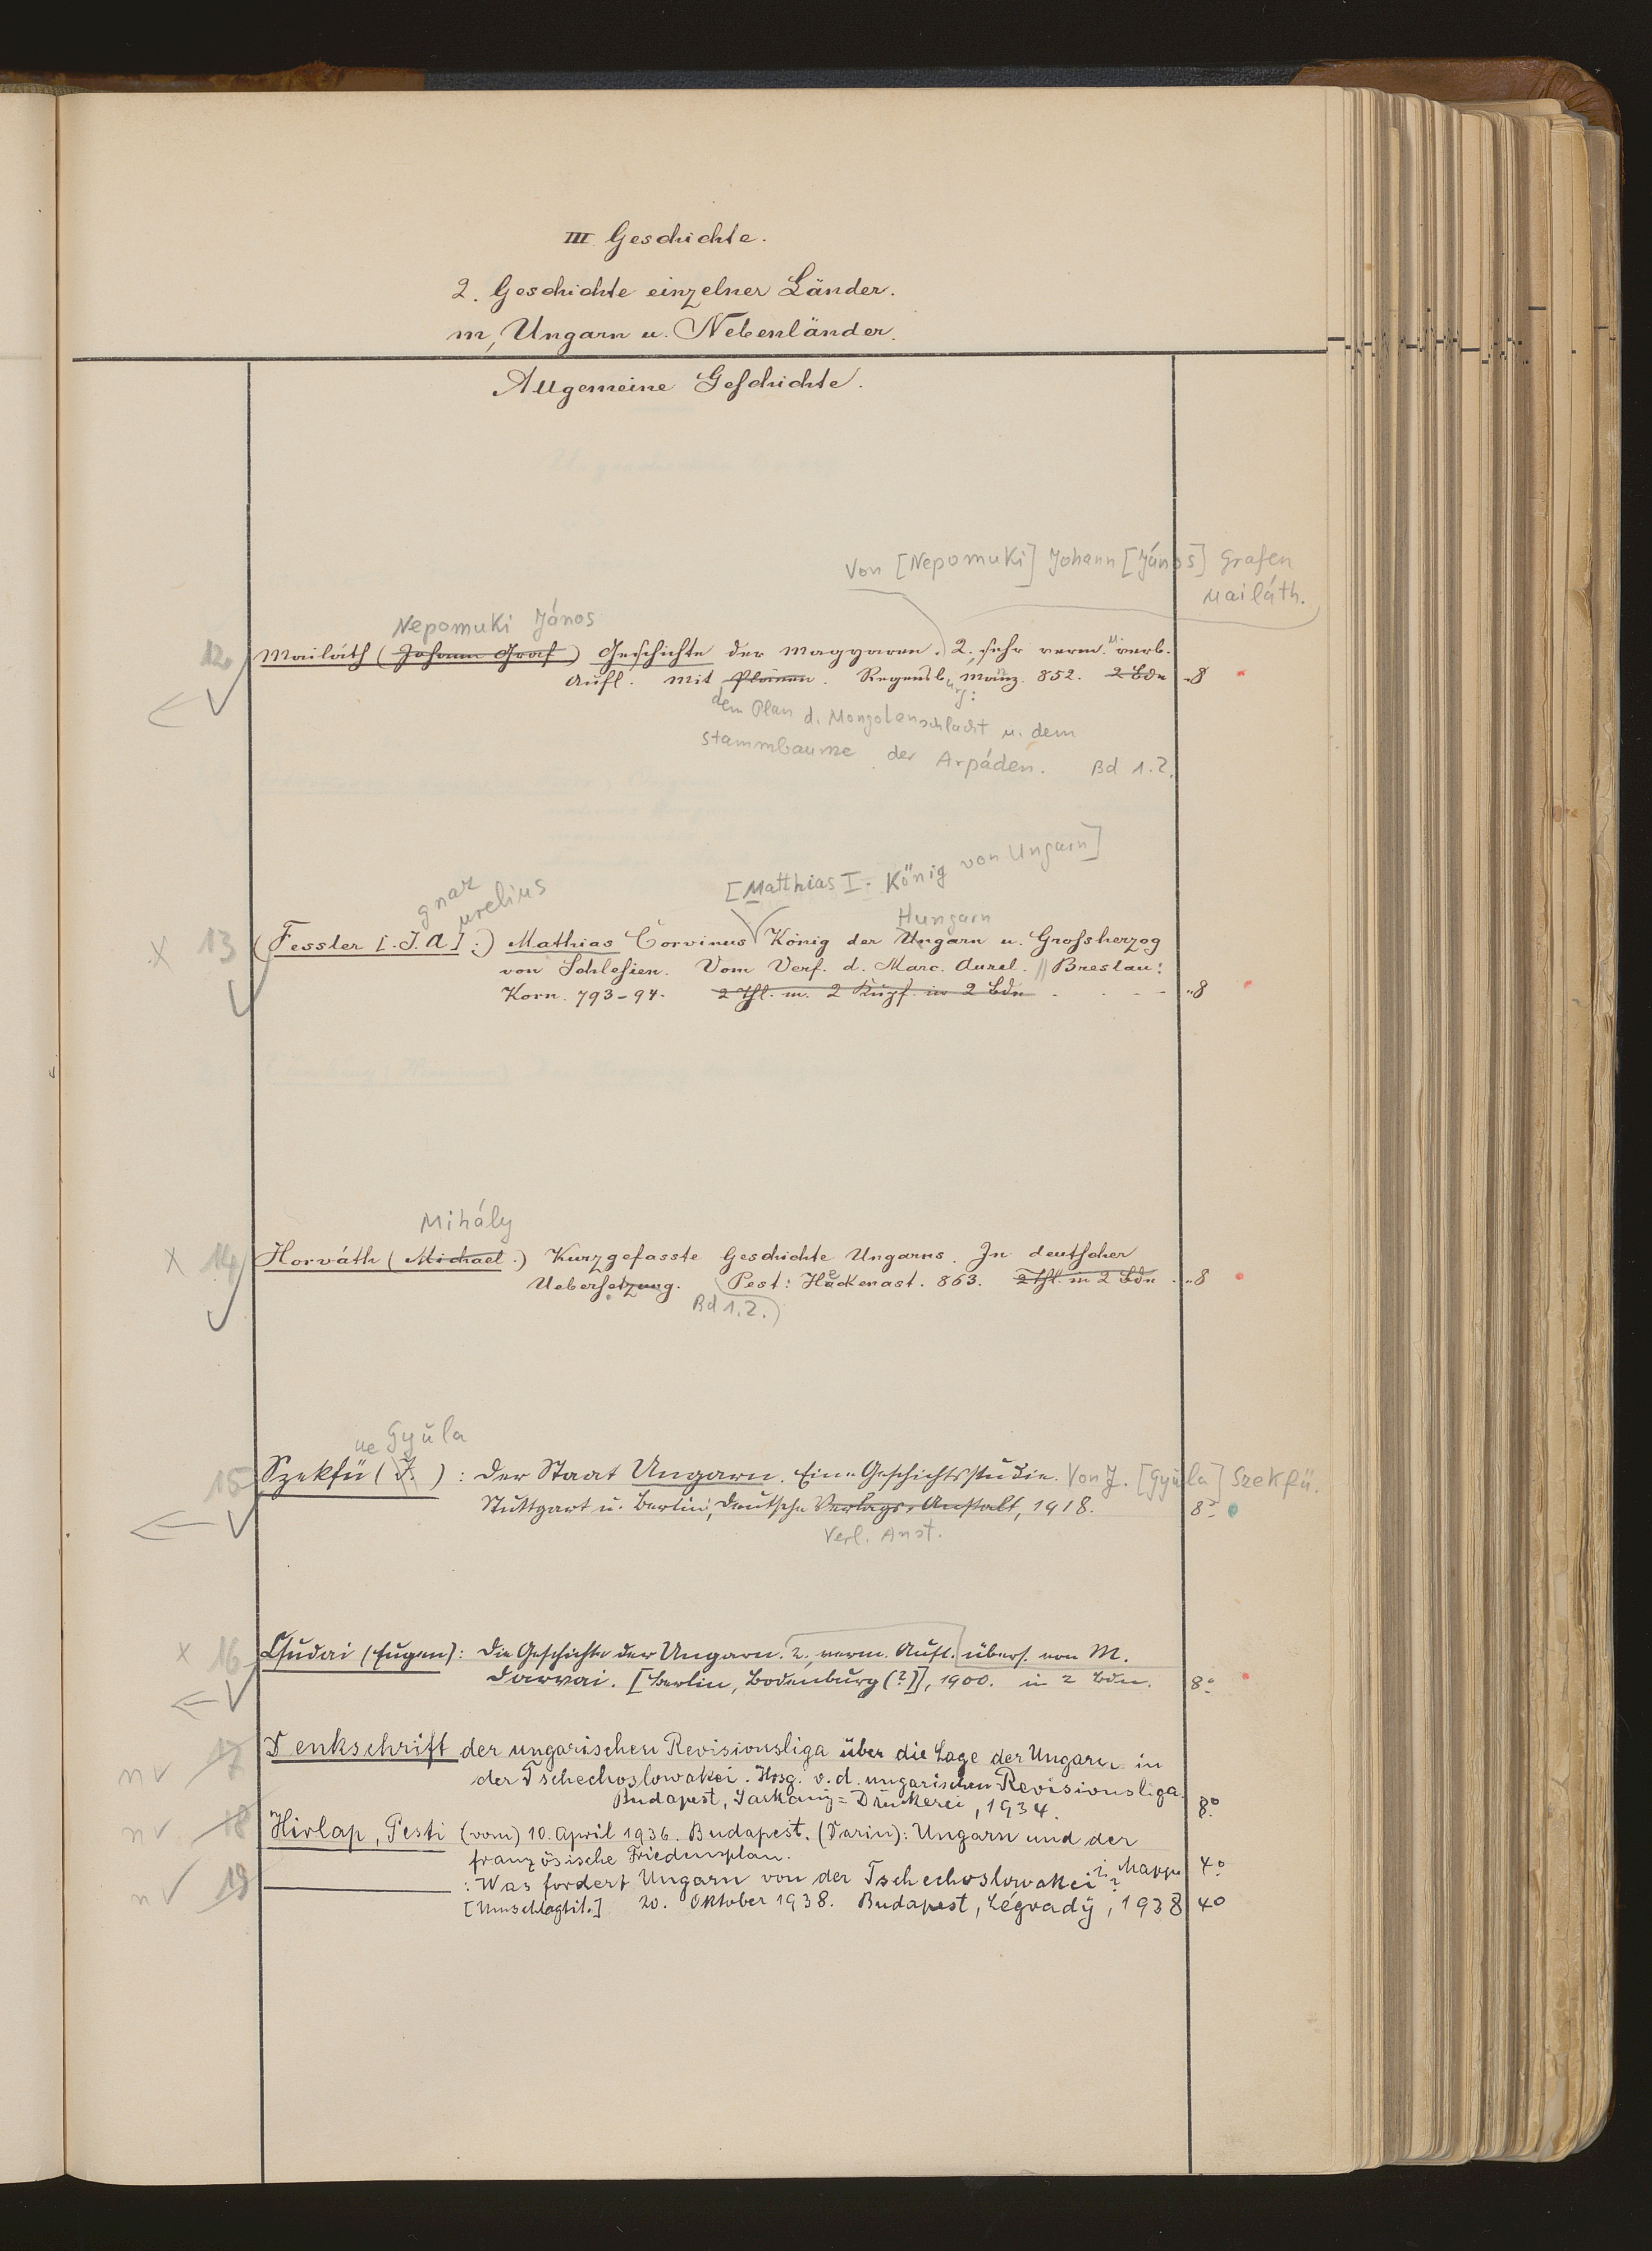 III Geschichte.
2. Geschichte einzelner Länder.
m, Ungarn u. Nebenländer.
Allgemeine Geschichte.
Von [Nepomuki] Johann [János] Grafen
Mailáth.
Nepomuki János
12 Mailáth (Johann Graf) Geschichte der Magyaren. 2. sehr verm. u. verb.
Aufl. Mit Plänen. Regensb. Manz. 852. 2 Bde 8
urg:
dem Plan d. Mongolenschlacht u. dem
Stammbaume der Arpáden. Bd 1.2.
[Matthias I. König von Ungarn]
gnaz urelius
Hungarn
x 13 (Fessler [J. A.]:) Mathias Corvinus König der Ungarn u. Grossherzog
von Schlesien. Vom Verf. d. Marc. Aurel. // Breslau:
Korn. 793-94. 2 Thl. m. 2 Kupf. in 2 Bdn 8
Mihály
x 14 Horváth (Michael.) Kurzgefasste Geschichte Ungarns. In deutscher
Uebersetzung. Pest: Heckenast. 863. 2 Thl. in 2 Bdn 8
Bd 1.2.)
ue Gyula
15 Szekfü (J.): Der Staat Ungarn. Eine Geschichtsstudie. Von J. [Gyula] Szekfü.
Stuttgart u. Berlin, Deutsche Verlags-Anstalt, 1918. 8°
Verl. Anst.
x 16 Csudai (Eugen): Die Geschichte der Ungarn. 2., verm. Aufl. übers. von M.
Darvai. [Berlin, Bodenburg (?)], 1900. in 2 Bdn. 8°
n v 17 Denkschrift der ungarischen Revisionsliga über die Lage der Ungarn in
der Tschechoslowakei. Hrsg. v. d. ungarischen Revisionsliga.
Budapest, Druckerei, 1934. 8°
n v 18 Hirlap, Pesti (vom) 10. April 1936. Budapest. (Darin): Ungarn und der
französische Friedensplan. 4°
n v 19 : Was fordert Ungarn von der Tschechoslowakei? i. Mappe
[Umschlagtit.] 20. Oktober 1938. Budapest, Légrady, 1938 40